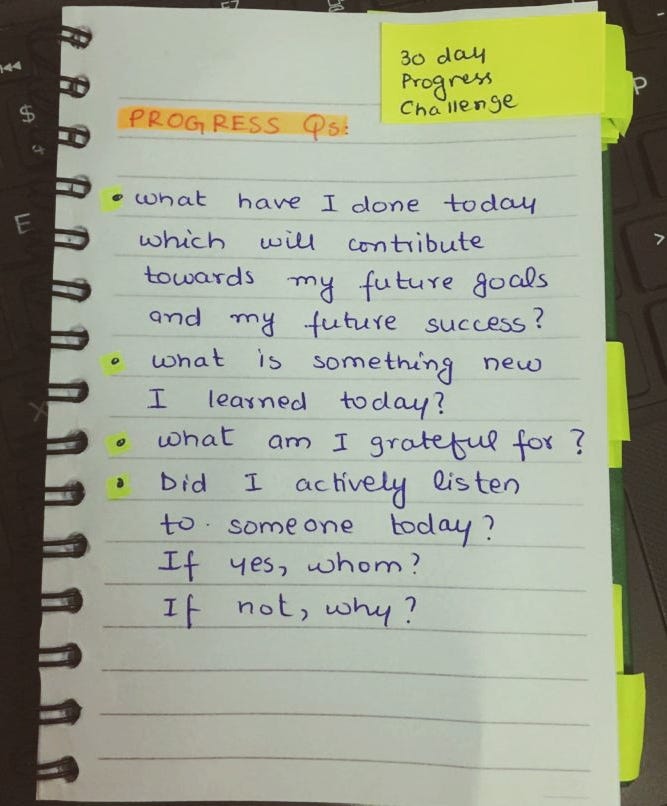 30 day
Progress
Challenge
PROGRESS Qs:
• what have I done today
which will contribute
towards my future goals
and my future success?
• what is something new
I learned today?
• what am I grateful for?
• Did I actively listen
to someone today?
If yes, whom?
If not, why?
$
E
X
P
>